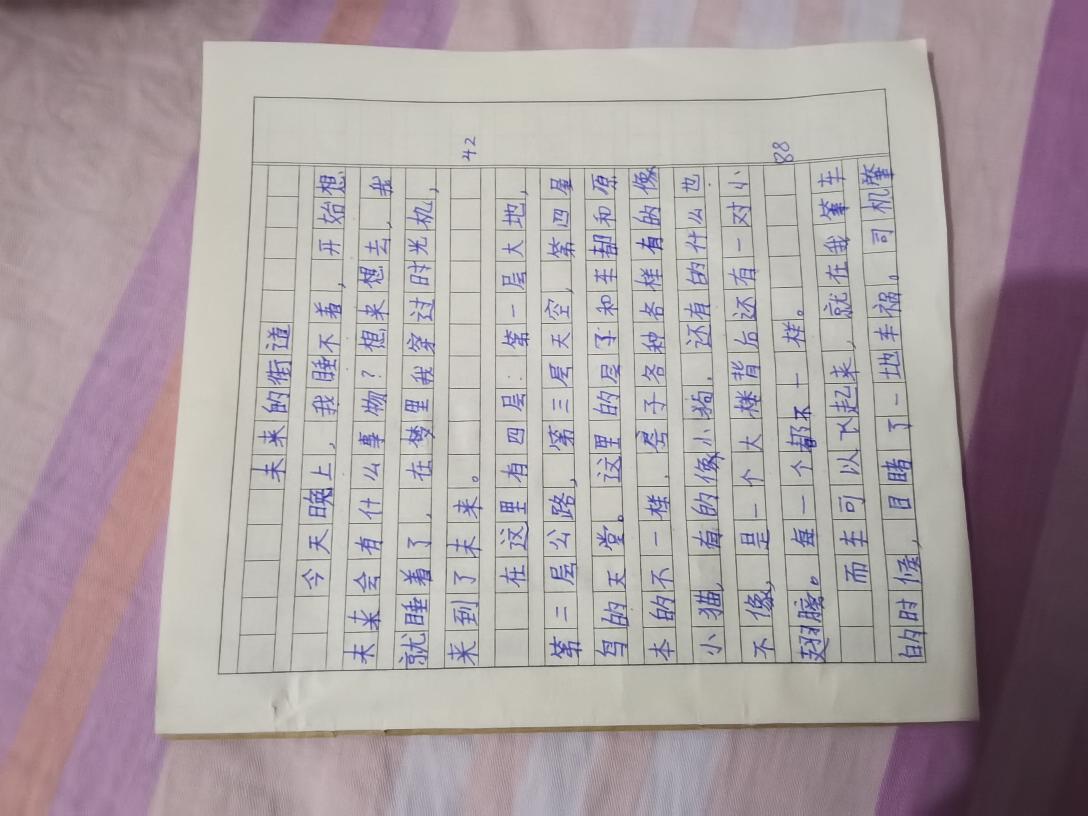 未来的街道
今天晚上，我睡不着，开始想
未来会有什么事物？想来想去，我
就睡着了，在梦里我穿过时光机，
来到了未来。
42
在这里有四层：第一层大地，
第二层公路，第三层天空，第四层
鸟的天堂。这里的层子和车都和原
本的不一样，层子各种各样有的像
小猫，有的像小狗，还有的什么也
不像，是一个大楼背后还有一对小
翅膀。每一个都不一样。
88
而车可以飞起来，就在我肇车
的时候，目睹了一地车祸。司机肇